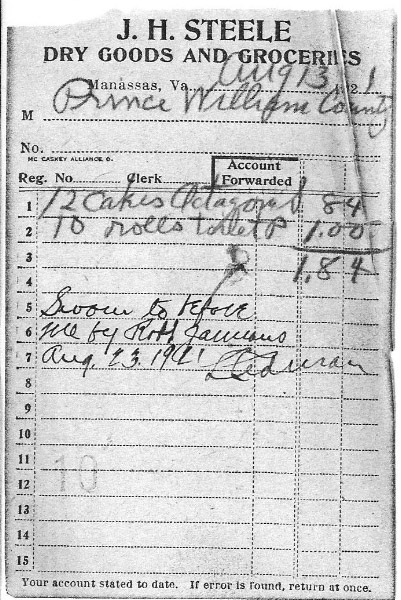 J. H. STEELE
DRY GOODS AND GROCERIES
Manassas, Va. Aug 13 192 1
M Prince William County
No.
MC CASKEY ALLIANCE O.
Reg. No. Clerk Account Forwarded
1 12 Cakes Octagon 84
2 10 rolls toilet P 1.00
3 1.84
4
5 Sworn to before
6 me by Robt
7 Aug. 23. 1921
8
9
10
11
12 10
13
14
15
Your account stated to date. If error is found, return at once.